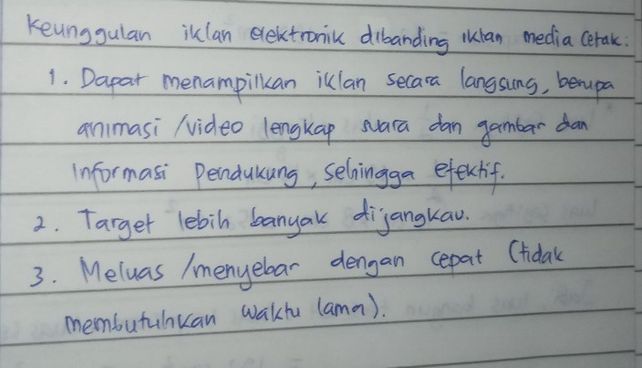 Keunggulan iklan elektronik dibanding iklan media cetak:
1. Dapat menampilkan iklan secara langsung, berupa
animasi /video lengkap suara dan gambar dan
informasi pendukung, sehingga efektif.
2. Target lebih banyak dijangkau.
3. Meluas /menyebar dengan cepat (tidak
membutuhkan waktu lama).